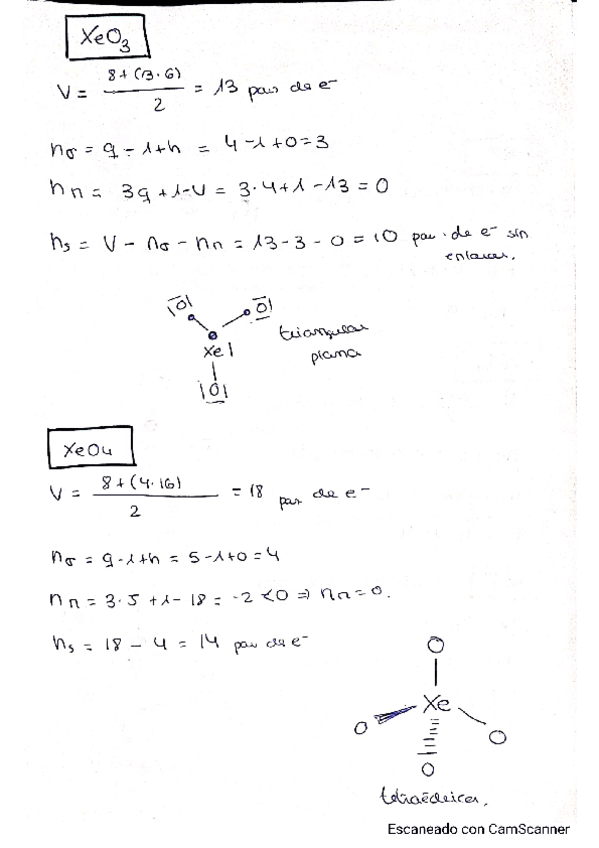 XeO3
V = 8 + (3·6) / 2 = 13 par de e-
nσ = q - 1 + h = 4 - 1 + 0 = 3
nπ = 3q + 1 - V = 3·4 + 1 - 13 = 0
ns = V - nσ - nπ = 13 - 3 - 0 = 10 par de e- sin
enlazar.
|O| |O|
Xe| triangular
plana
|O|
XeO4
V = 8 + (4·16) / 2 = 18 par de e-
nσ = q - 1 + h = 5 - 1 + 0 = 4
nπ = 3·5 + 1 - 18 = -2 < 0 ⇒ nπ = 0.
ns = 18 - 4 = 14 par de e-
O
Xe
O O
O
tetraédrica.
Escaneado con CamScanner